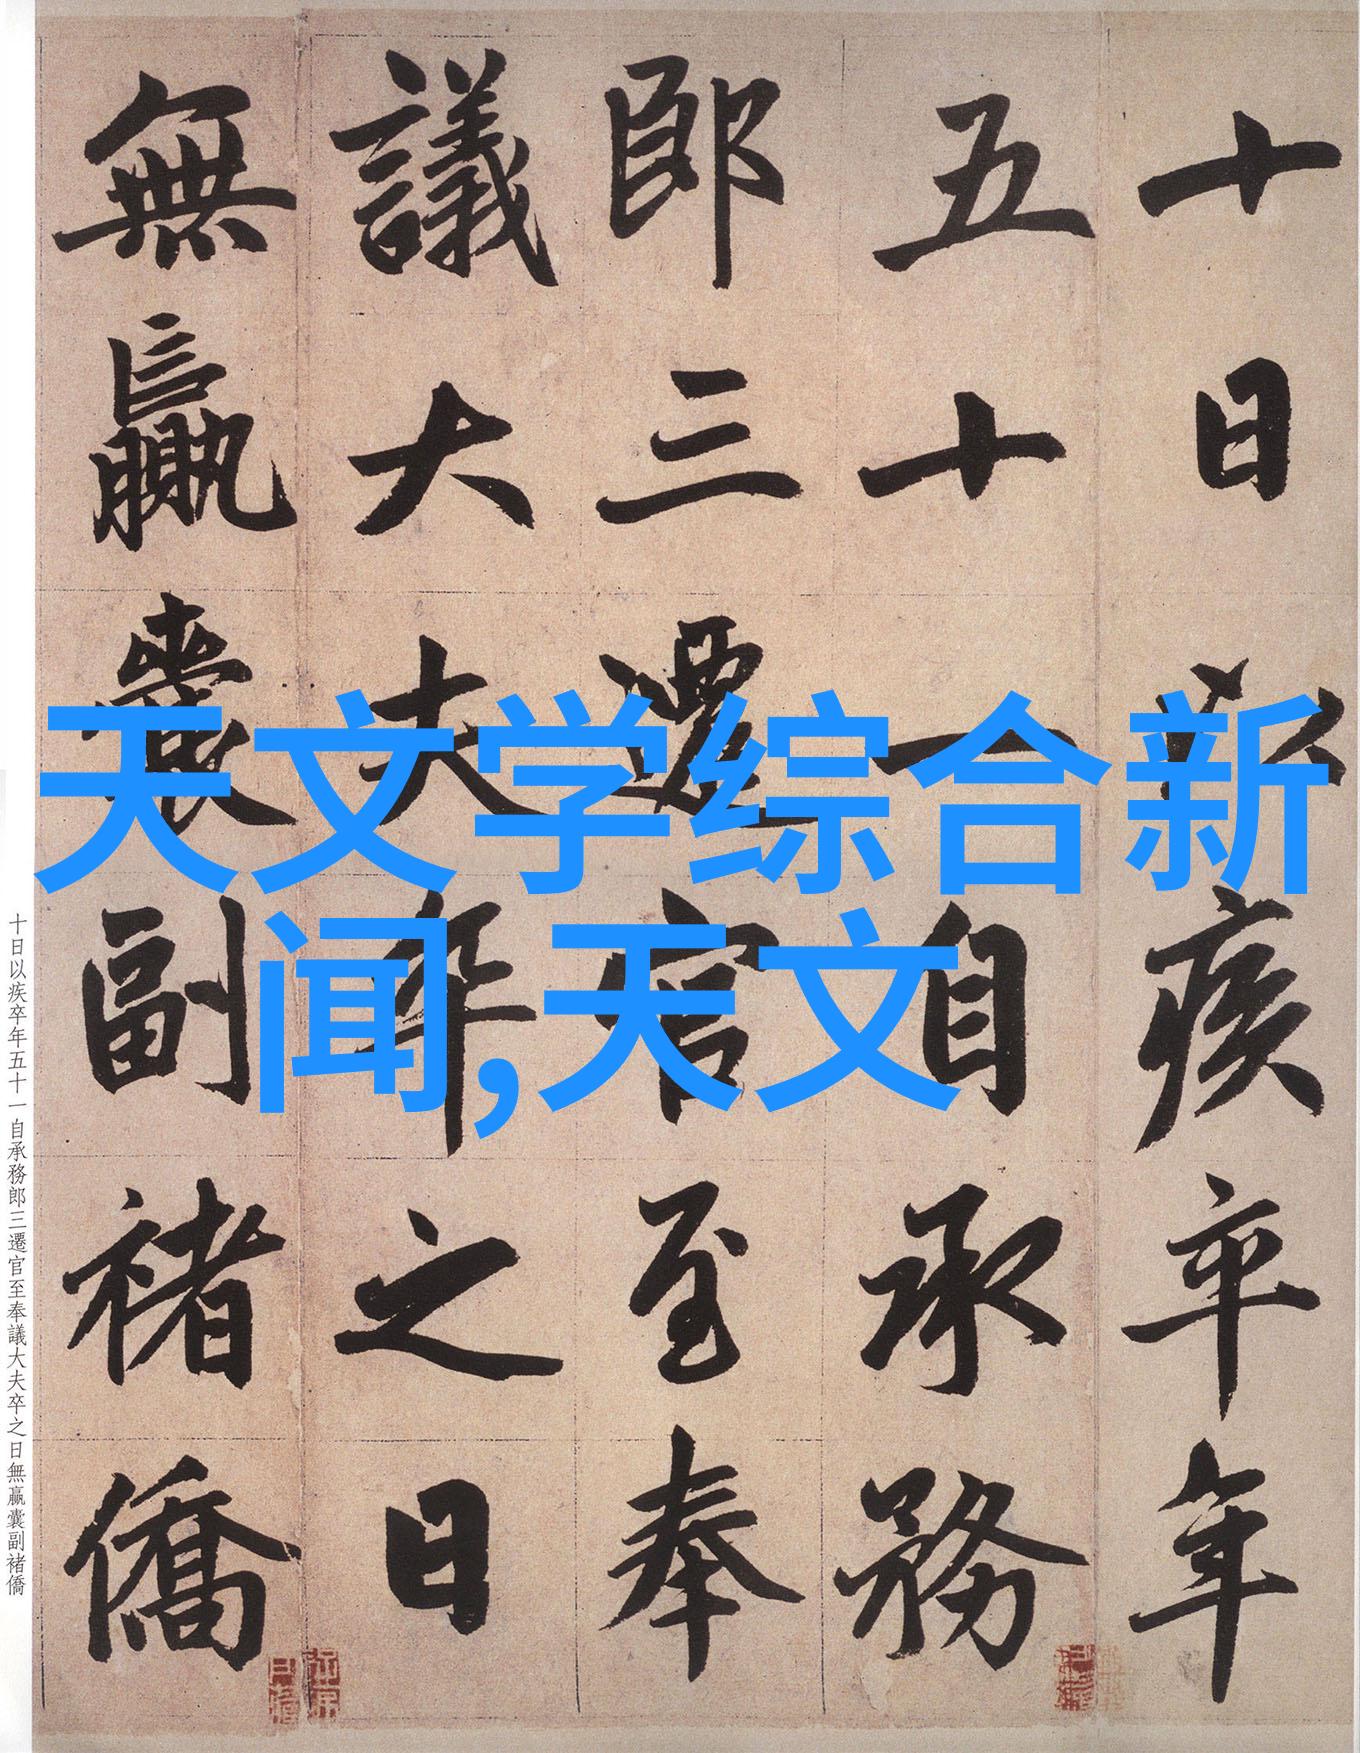 十日以疾卒年
五十一自承務
郎三遷官至奉
議大夫卒之日
無贏囊副褚僑
天文学综合新
闻,天文
十日以疾卒年五十一自承務郎三遷官至奉議大夫卒之日無贏囊副褚僑